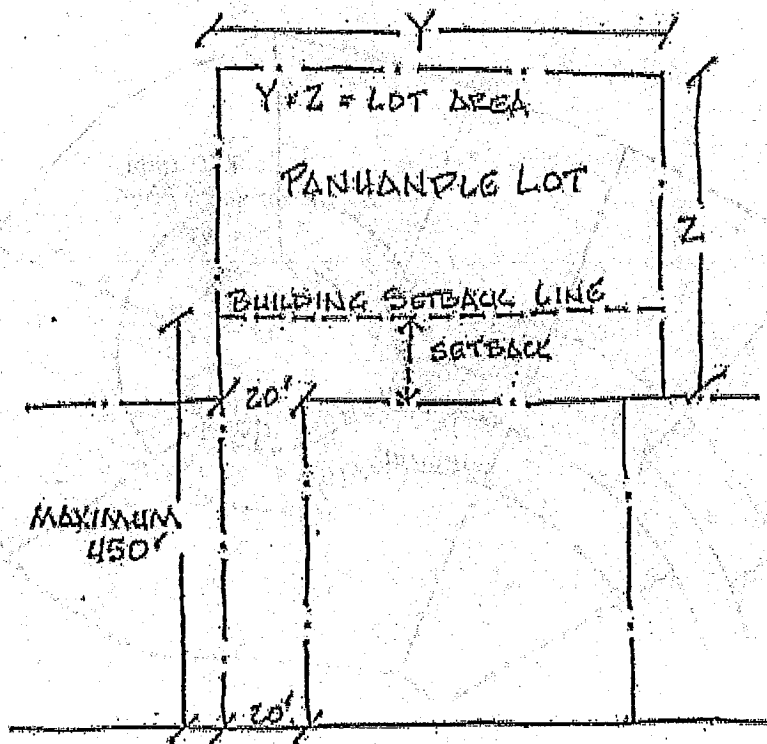 Y
Y * Z = LOT AREA
PANHANDLE LOT
Z
BUILDING SETBACK LINE
SETBACK
20'
MAXIMUM
450'
20'